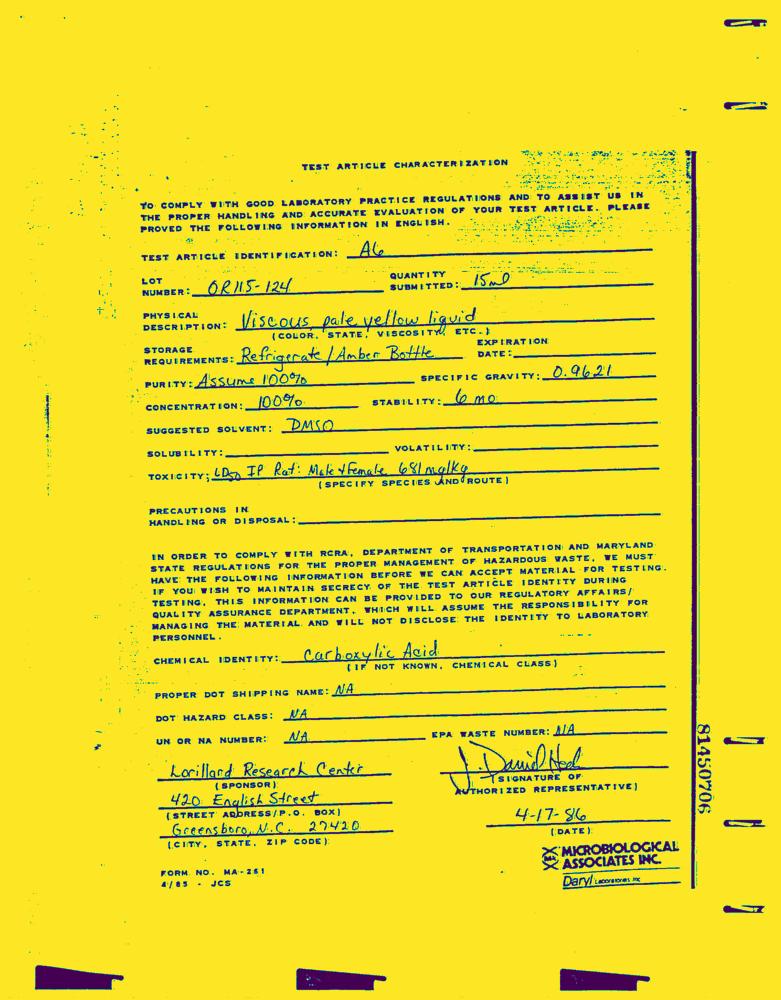 TEST ARTICLE CHARACTERIZATION
TO COMPLY WITH GOOD LABORATORY PRACTICE REGULATIONS AND TO ASSIST US IN
THE PROPER HANDLING AND ACCURATE EVALUATION OF YOUR TEST ARTICLE. PLEASE
PROVED THE FOLLOWING INFORMATION IN ENGLISH.
TEST ARTICLE IDENTIFICATION: A6
LOT NUMBER: OR115-124 QUANTITY SUBMITTED: 15ml
PHYSICAL DESCRIPTION: Viscous pale yellow liquid
(COLOR, STATE, VISCOSITY, ETC.)
STORAGE REQUIREMENTS: Refrigerate/Amber Bottle EXPIRATION DATE:
PURITY: Assume 100% SPECIFIC GRAVITY: 0.9621
CONCENTRATION: 100% STABILITY: 6 mo.
SUGGESTED SOLVENT: DMSO
SOLUBILITY: VOLATILITY:
TOXICITY: LD50 IP Rat: Male & Female 681 mg/kg
(SPECIFY SPECIES AND ROUTE)
PRECAUTIONS IN
HANDLING OR DISPOSAL:
IN ORDER TO COMPLY WITH RCRA, DEPARTMENT OF TRANSPORTATION AND MARYLAND
STATE REGULATIONS FOR THE PROPER MANAGEMENT OF HAZARDOUS WASTE, WE MUST
HAVE THE FOLLOWING INFORMATION BEFORE WE CAN ACCEPT MATERIAL FOR TESTING.
IF YOU WISH TO MAINTAIN SECRECY OF THE TEST ARTICLE IDENTITY DURING
TESTING, THIS INFORMATION CAN BE PROVIDED TO OUR REGULATORY AFFAIRS/
QUALITY ASSURANCE DEPARTMENT, WHICH WILL ASSUME THE RESPONSIBILITY FOR
MANAGING THE MATERIAL AND WILL NOT DISCLOSE THE IDENTITY TO LABORATORY
PERSONNEL.
CHEMICAL IDENTITY: Carboxylic Acid
(IF NOT KNOWN, CHEMICAL CLASS)
PROPER DOT SHIPPING NAME: NA
DOT HAZARD CLASS: NA
UN OR NA NUMBER: NA EPA WASTE NUMBER: NA
Lorillard Research Center
(SPONSOR)
420 English Street
(STREET ADDRESS/P.O. BOX)
Greensboro, N.C. 27420
(CITY, STATE, ZIP CODE)
J. David
(SIGNATURE OF
AUTHORIZED REPRESENTATIVE)
4-17-86
(DATE)
MICROBIOLOGICAL
ASSOCIATES INC.
Daryl Laboratories Inc
FORM NO. MA-261
4/85 - JCS
81450706